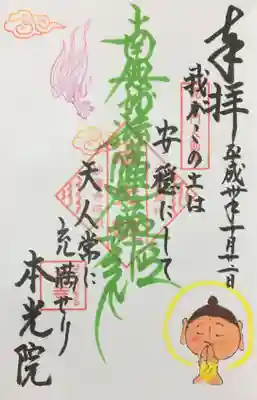 奉拝
平成卅年十一月廿二日
我がこの土は
安穏にして
南無妙法蓮華経
天人常に
充満せり
本光院